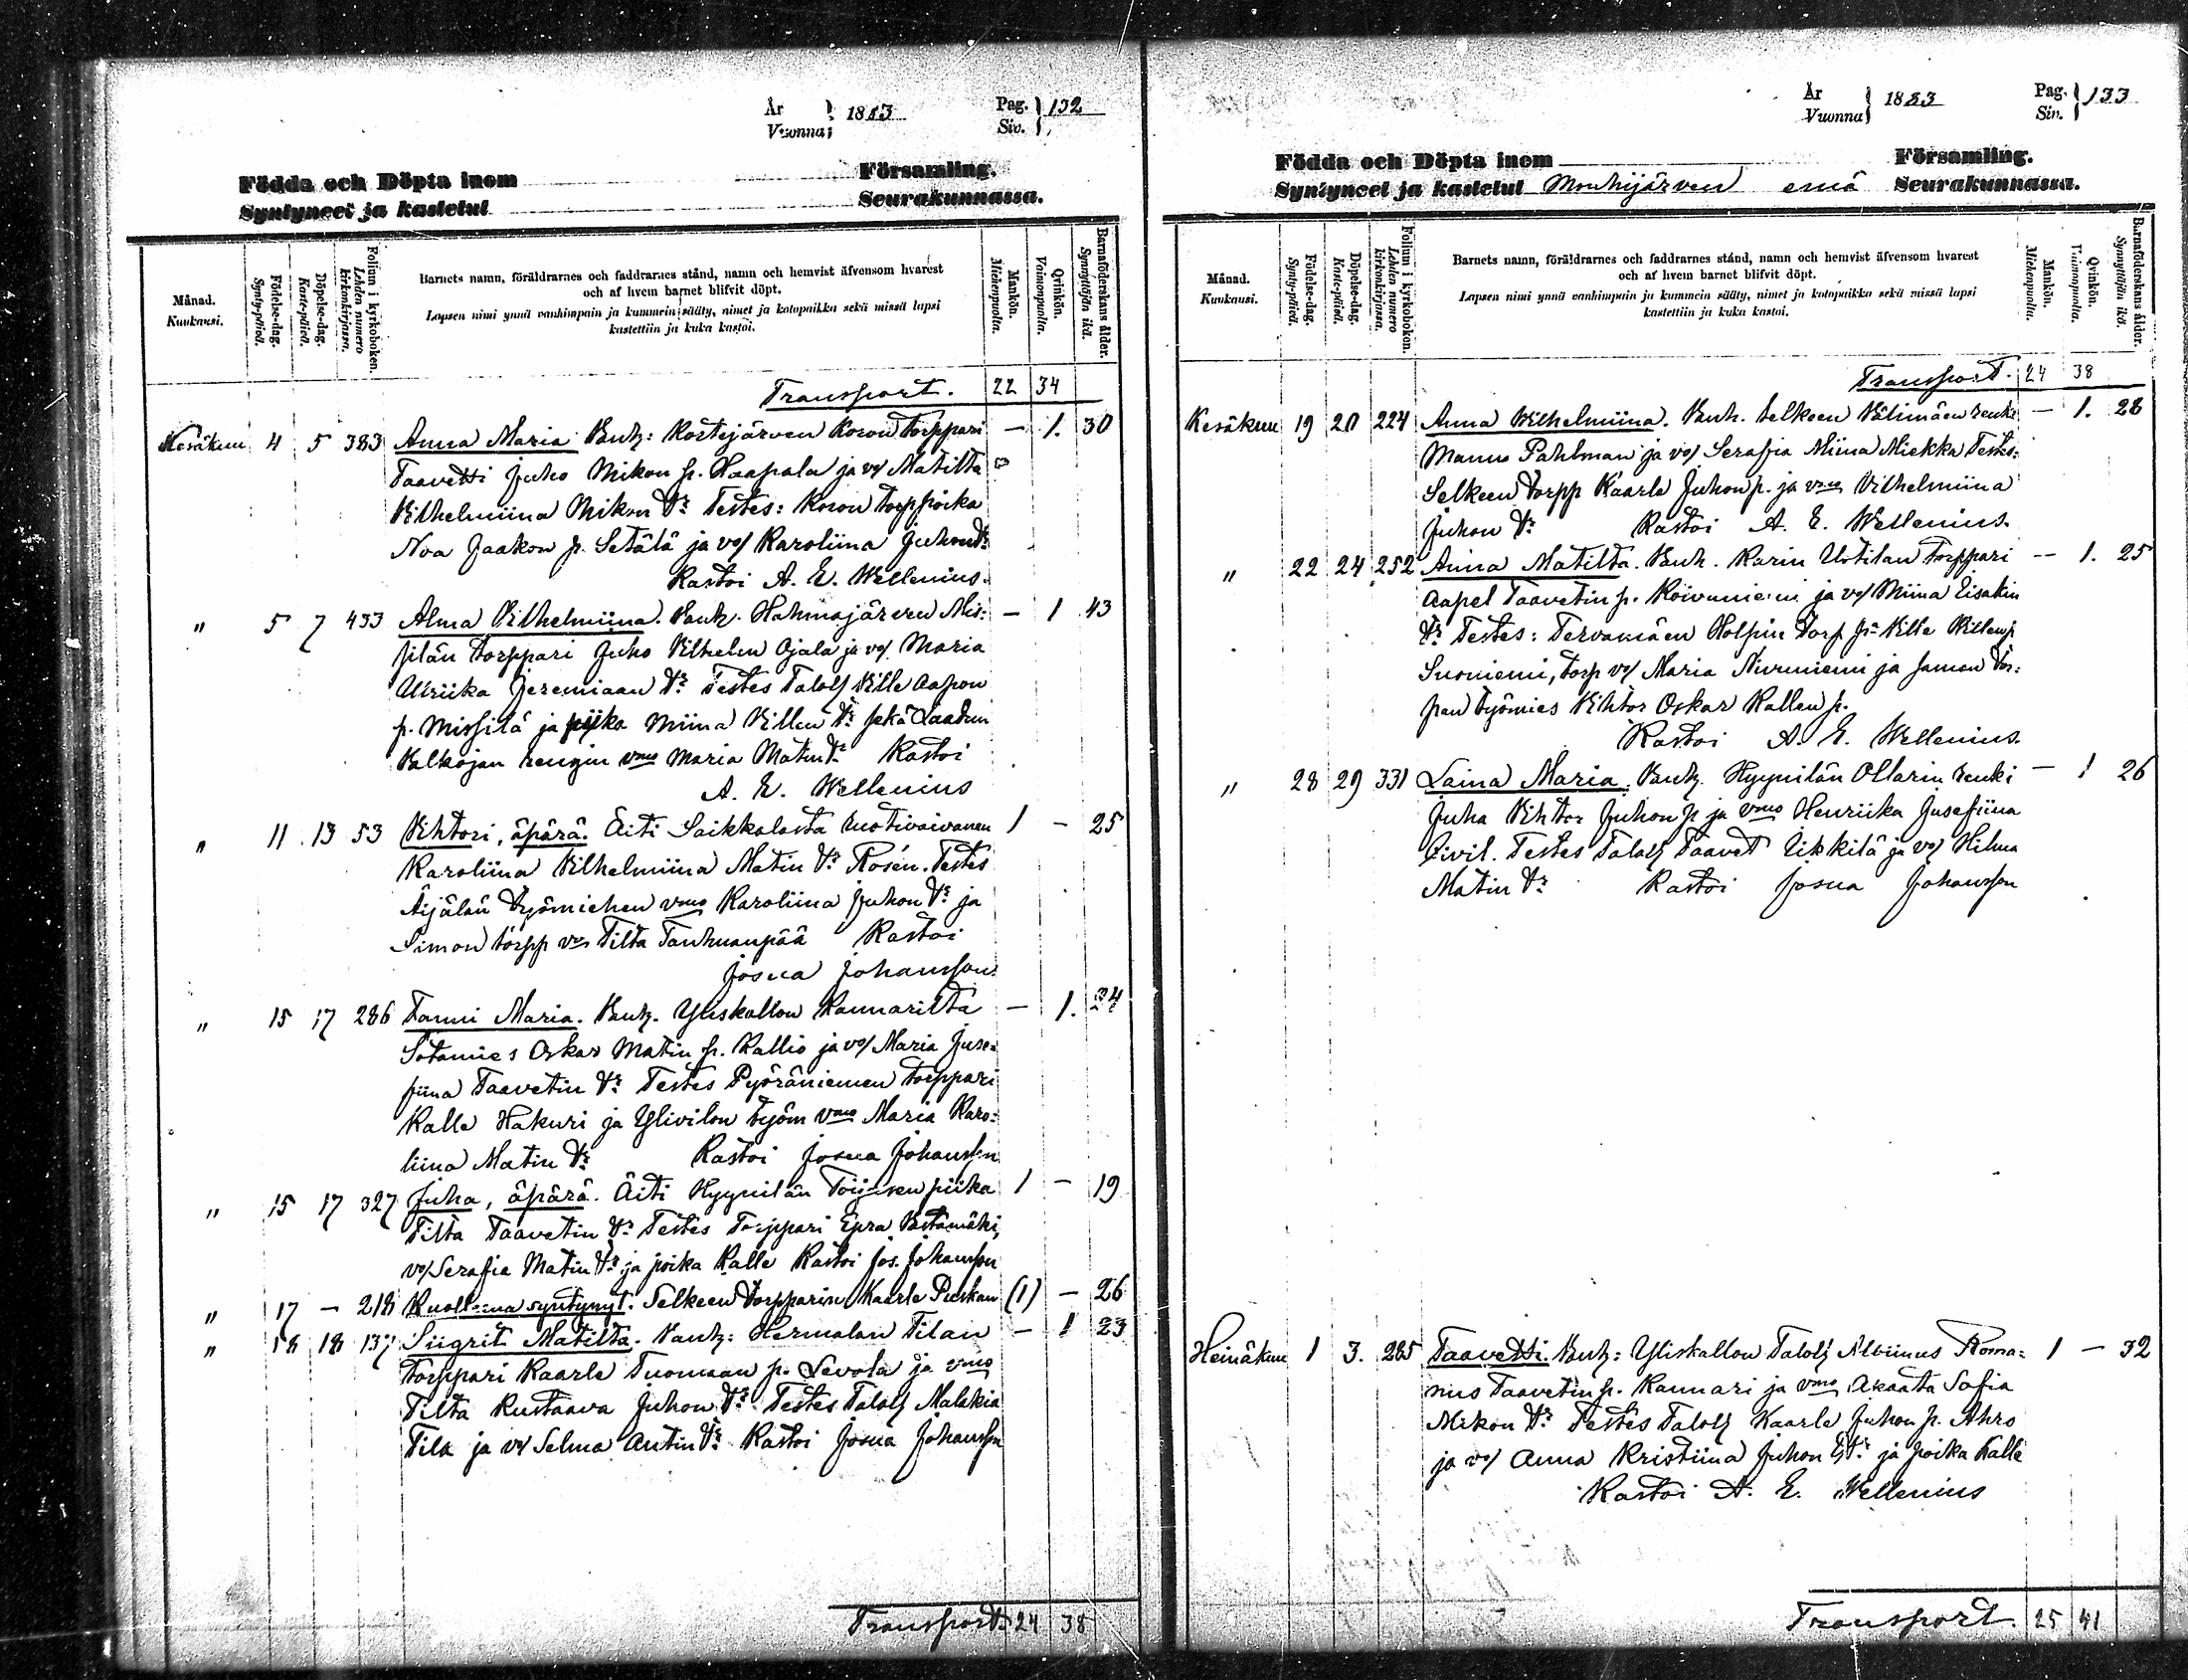 År
Vuonna
1883
Pag. 132
Siv.
Födda och Döpta inom Församling.
Syntyneet ja kastetut Seurakunnassa.
Månad.
Kuukausi.
Födelse-dag.
Synty-päivä.
Döpelse-dag.
Kaste-päivä.
Folium i kyrkoboken.
Lehden numero kirkonkirjassa.
Barnets namn, föräldrarnes och faddrarnes stånd, namn och hemvist äfvensom hvarest
och af hvem barnet blifvit döpt.
Lapsen nimi ynnä vanhimpain ja kummein sääty, nimet ja kotopaikka sekä missä lapsi
kastettiin ja kuka kastoi.
Mankön.
Miehenpuolta.
Qvinkön.
Vaimonpuolta.
Barnaföderskans ålder.
Synnyttäjän ikä.
Transport. 22 34
Kesäkuu 4 5 383 Anna Maria Vanh: Kortejärven Koron Torppari — 1. 30
Taavetti Juho Mikon p. Haapala ja vo/ Matilta
Vilhelmiina Mikon tr Testes: Koron torp poika
Noa Jaakon p. Setälä ja vo/ Karoliina Juhon tr
Kastoi A. E. Wellenius.
" 5 7 433 Alma Vilhelmiina. Vanh. Hahmajärven Mis- — 1 43
silän torppari Juho Vilhelm Ojala ja vo/ Maria
Ulriika Jeremiaan tr Testes Talolj Ville Aapon
p. Missilä ja piika Miina Villen tr sekä Laadun
Valkojan rengin vmo Maria Matin tr Kastoi
A. E. Wellenius
" 11 13 53 Vihtori, äpärä. Äiti Saikkalasta Ruotivaivanen 1 — 25
Karoliina Vilhelmiina Matin tr Rosén. Testes
Äijälän työmiehen vmo Karoliina Juhon tr ja
Simon torpp vm Tilta Tanhuanpää Kastoi
Josua Johansson.
" 15 17 286 Fanni Maria. Vanh. Yliskallon Kannarilta — 1. 24
Sotamies Oskar Matin p. Kallio ja vo/ Maria Juse-
fiina Taavetin tr Testes Pyöräniemen torppari
Kalle Hakuri ja Ylivilon työm vmo Maria Karo-
liina Matin tr Kastoi Josua Johansson
" 15 17 327 Juha, äpärä. Äiti Hyynilän Toijasen piika 1 — 19
Tilta Taavetin tr Testes Torppari Epra
vo/ Serafia Matin tr ja poika Kalle Kastoi Jos. Johansson
" 17 — 218 Kuolleena syntynyt. Selkeen torpparin Kaarle Puskan (1) — 26
" 18 18 137 Siigrit Matilta. Vanh: Hermalan Tilan — 1 23
torppari Kaarle Tuomaan p. Levola ja vmo
Tilta Kustaava Juhon tr Testes Talolj Malakia
Tila ja vo/ Selma Antin tr Kastoi Josua Johansson
Transport. 24 38
År
Vuonna
1883
Pag. 133
Siv.
Födda och Döpta inom Församling.
Syntyneet ja kastetut Mouhijärven emä Seurakunnassa.
Månad.
Kuukausi.
Födelse-dag.
Synty-päivä.
Döpelse-dag.
Kaste-päivä.
Folium i kyrkoboken.
Lehden numero kirkonkirjassa.
Barnets namn, föräldrarnes och faddrarnes stånd, namn och hemvist äfvensom hvarest
och af hvem barnet blifvit döpt.
Lapsen nimi ynnä vanhimpain ja kummein sääty, nimet ja kotopaikka sekä missä lapsi
kastettiin ja kuka kastoi.
Mankön.
Miehenpuolta.
Qvinkön.
Vaimonpuolta.
Barnaföderskans ålder.
Synnyttäjän ikä.
Transport. 24 38
Kesäkuu 19 20 224 Anna Wilhelmiina. Vanh. Selkeen Välimäen renki — 1. 28
Manu Pahlman ja vo/ Serafia Miina Miekka Testes:
Selkeen torpp Kaarle Juhon p. ja vmo Vilhelmiina
Juhon tr Kastoi A. E. Wellenius.
" 22 24 252 Aina Matilta. Vanh. Karin Uotilan torppari — 1. 25
Aapel Taavetin p. Koivuniemi ja vo/ Miina Eisakin
tr Testes: Tervamäen Holpin torp p Ville Villen p
Suoniemi, torp vo/ Maria Nurmiemi ja saman tor-
pan työmies Vihtor Oskar Kallen p.
Kastoi A. E. Wellenius.
" 28 29 331 Laina Maria. Vanh. Hyynilän Ollarin renki — 1 26
Juha Vihtor Juhon p ja vmo Henriika Jusefiina
Civil. Testes Talolj Taavet Uikkilä ja vo/ Hilma
Matin tr Kastoi Josua Johansson
Heinäkuu 1 3. 285 Taavetti. Vanh: Yliskallon Talolj Albinus Roma- 1 — 32
nus Taavetin p. Kannari ja vmo Akaata Sofia
Mikon tr Testes Talolj Kaarle Juhon p. Ahro
ja vo/ Anna Kristiina Juhon tr ja poika Kalle
Kastoi A. E. Wellenius
Transport. 25 41